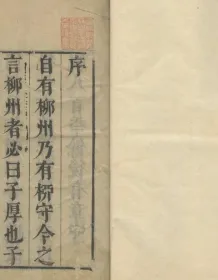 序
自有柳州乃有柳守今之
言柳州者必曰子厚也子